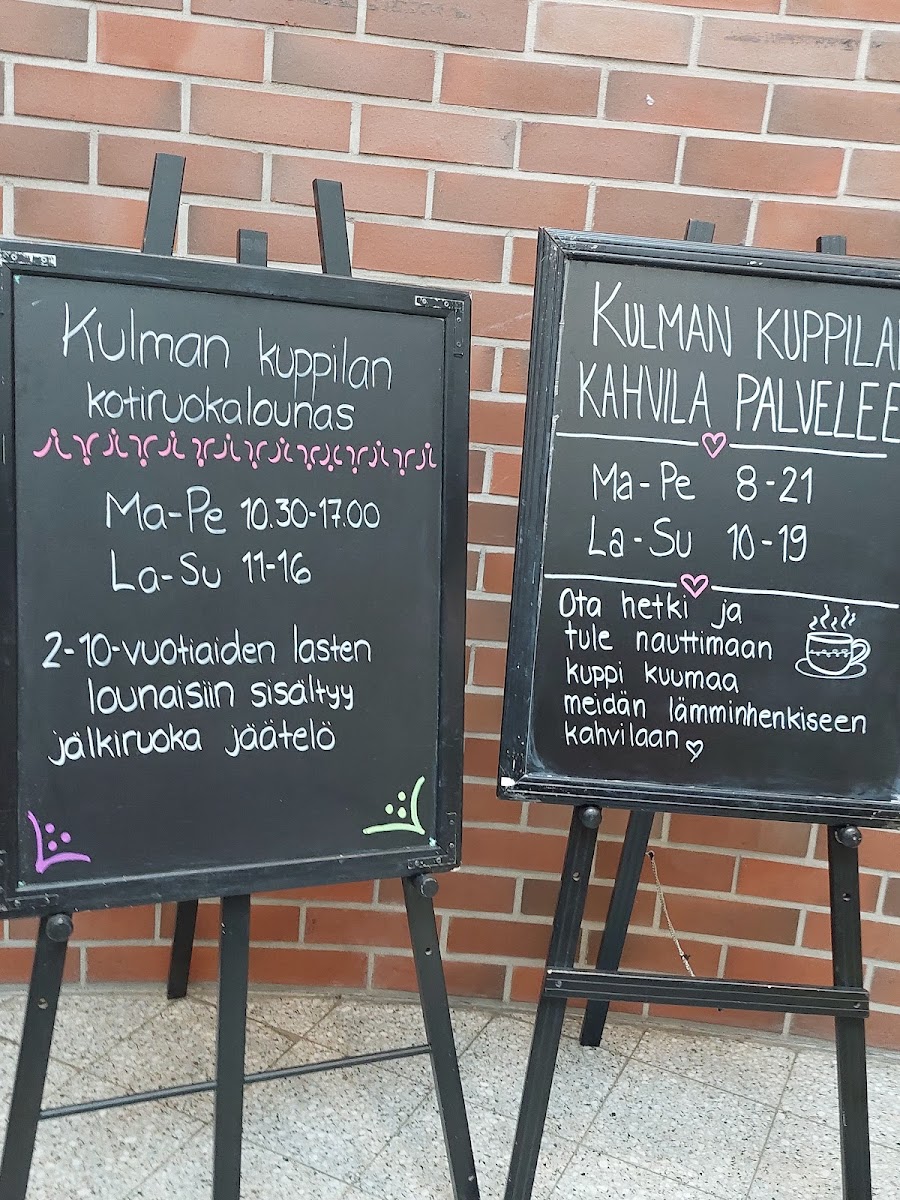 Kulman kuppilan
kotiruokalounas
Ma-Pe 10.30-17.00
La-Su 11-16
2-10-vuotiaiden lasten
lounaisiin sisältyy
jälkiruoka jäätelö
KULMAN KUPPILAN
KAHVILA PALVELEE
Ma-Pe 8-21
La-Su 10-19
Ota hetki ja
tule nauttimaan
kuppi kuumaa
meidän lämminhenkiseen
kahvilaan